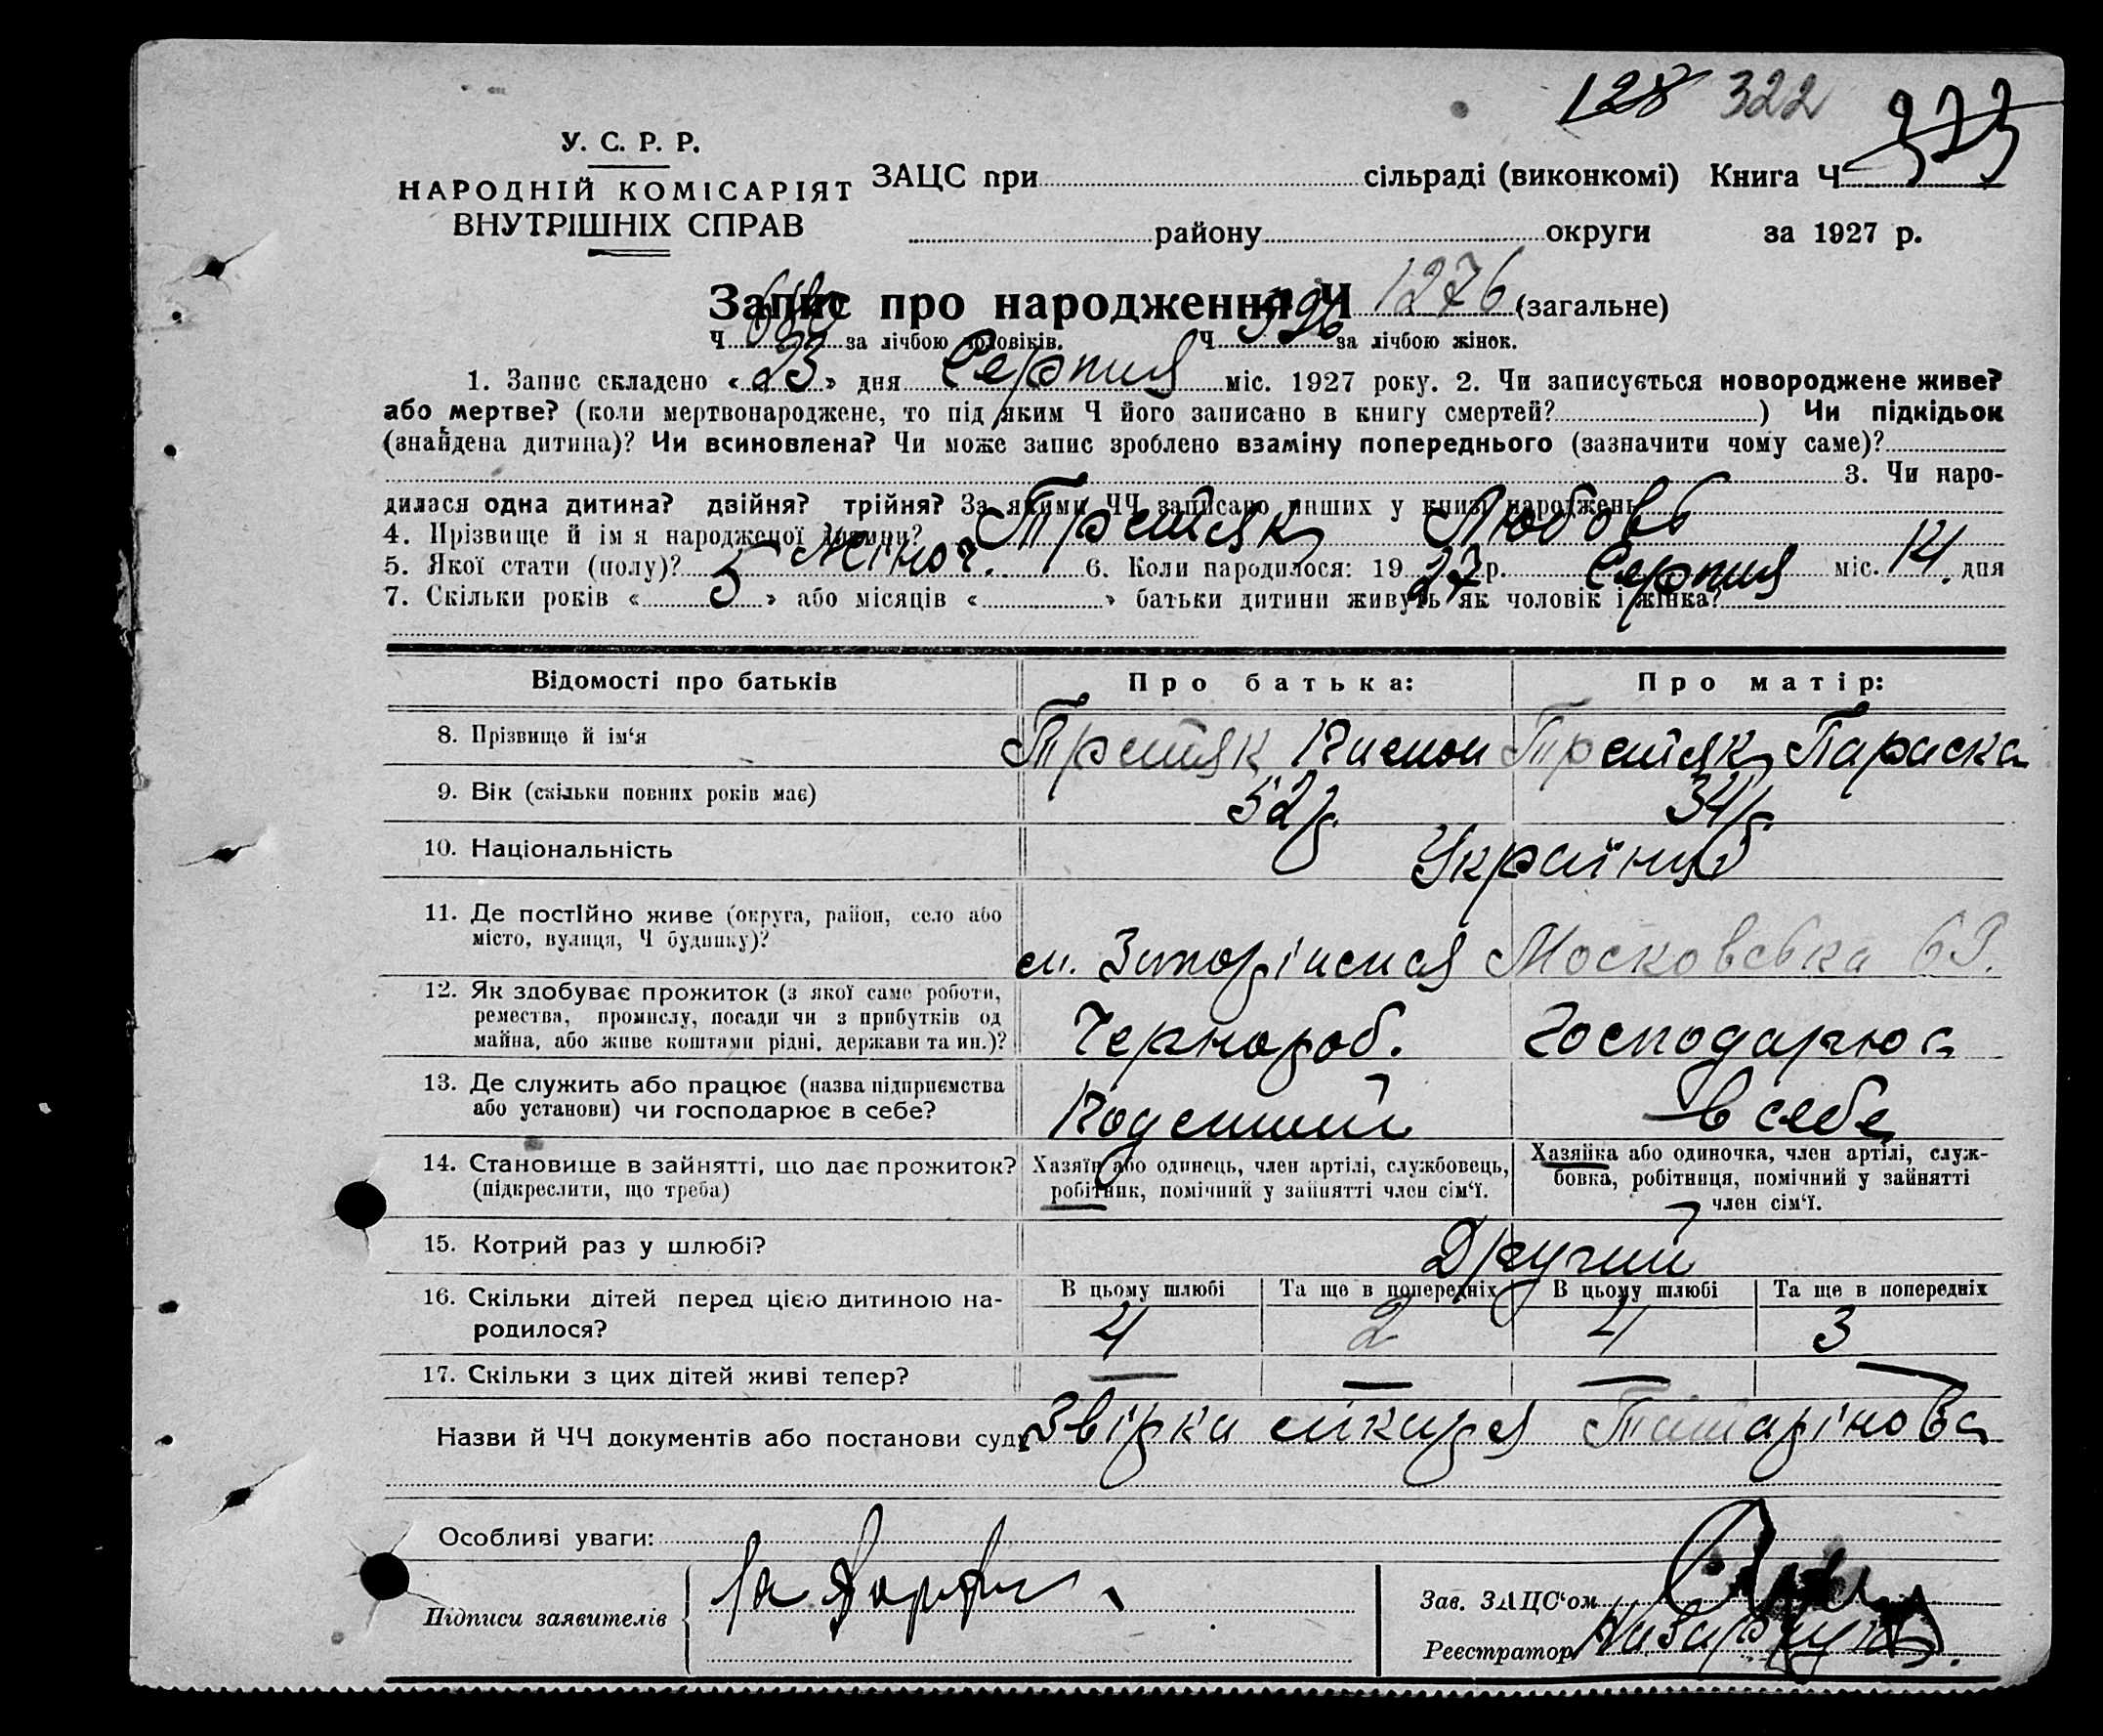 128 322 373
У. С. Р. Р.
НАРОДНІЙ КОМІСАРІЯТ
ВНУТРІШНІХ СПРАВ
ЗАЦС при сільраді (виконкомі) Книга Ч
району округи за 1927 р.
Запис про народження Ч 1276 (загальне)
Ч за лічбою чоловіків. Ч 596 за лічбою жінок.
1. Запис складено « 23 » дня Серпня міс. 1927 року. 2. Чи записується новороджене живе?
або мертве? (коли мертвонароджене, то під яким Ч його записано в книгу смертей? ) Чи підкідьок
(знайдена дитина)? Чи всиновлена? Чи може запис зроблено взаміну попереднього (зазначити чому саме)?
3. Чи наро-
дилася одна дитина? двійня? трійня? За якими ЧЧ записано инших у книзі народжень
4. Прізвище й ім я народженої дитини? Третяк Любовь
5. Якої стати (полу)? Жіноч. 6. Коли народилося: 19 27 р. Серпня міс. 14 дня
7. Скільки років « 5 » або місяців « » батьки дитини живуть як чоловік і жінка?
Відомості про батьків Про батька: Про матір:
8. Прізвище й ім'я Третяк Третяк Параска
9. Вік (скільки повних років має) 52 р. 34 р.
10. Національність Українці
11. Де постійно живе (округа, район, село або
місто, вулиця, Ч будинку)? м. Московська 69.
12. Як здобуває прожиток (з якої саме роботи,
ремества, промислу, посади чи з прибутків од
майна, або живе коштами рідні, держави та ин.)? Чернороб. Господарює
13. Де служить або працює (назва підприємства
або установи) чи господарює в себе? Поденний в себе
14. Становище в зайнятті, що дає прожиток?
(підкреслити, що треба)
Хазяїн або одинець, член артілі, службовець,
робітник, помічний у зайнятті член сім'ї.
Хазяйка або одиночка, член артілі, служ-
бовка, робітниця, помічний у зайнятті
член сім'ї.
15. Котрий раз у шлюбі? Другий
16. Скільки дітей перед цією дитиною на-
родилося?
В цьому шлюбі Та ще в попередніх В цьому шлюбі Та ще в попередніх
4 2 4 3
17. Скільки з цих дітей живі тепер? — — — —
Назви й ЧЧ документів або постанови суду Звірка лікаря Татарінова
Особливі уваги:
Підписи заявителів
Зав. ЗАЦС'ом
Реєстратор